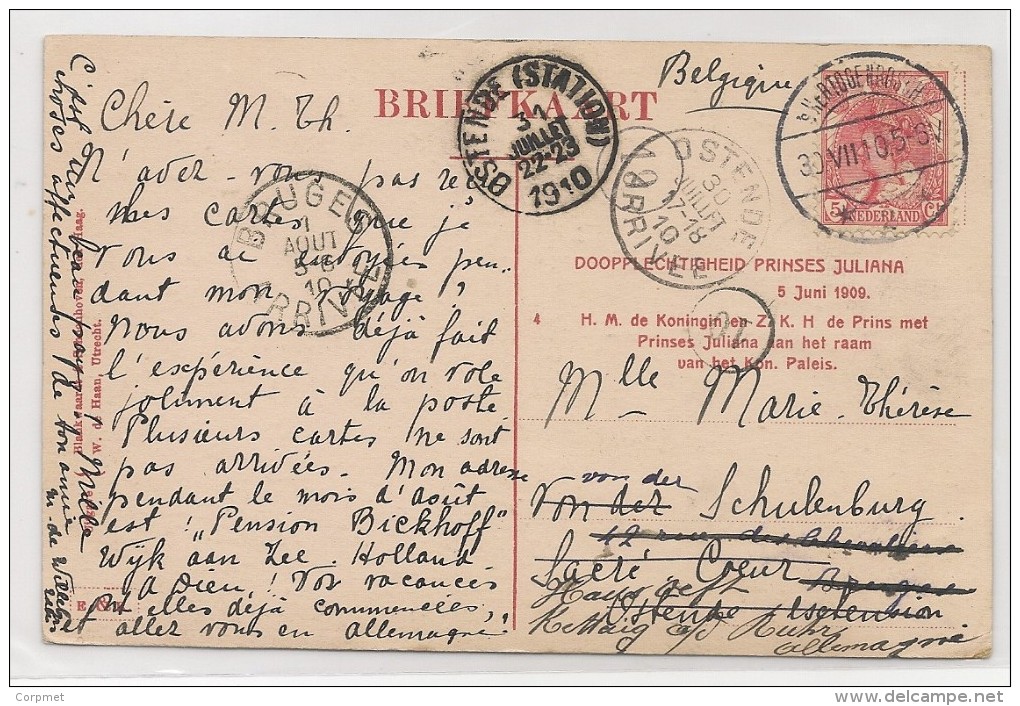 BRIEFKAART
Belgique
Chère M. Th.
N'avez-vous pas reçu
mes cartes que je
vous ai envoyées pen-
dant mon voyage?
Nous avons déjà fait
l'expérience qu'on vole
joliment à la poste
Plusieurs cartes ne sont
pas arrivées. Mon adresse
pendant le mois d'août
est! "Pension Bickhoff"
Wijk aan Zee. Holland
A Dieu! Vos vacances
sont elles déjà commencées,
et allez vous en allemagne?
OSTENDE (STATION)
31
JUILLET
22-23
1910
BRUGES
1
AOUT
5-6
10
ARRIVÉE
OSTENDE
30
JUILLET
17-18
10
ARRIVÉE
'S-HERTOGENBOSCH
30.VII.10.5-6N
5 Ct
NEDERLAND
DOOPPLECHTIGHEID PRINSES JULIANA
5 Juni 1909.
4 H. M. de Koningin en Z. K. H de Prins met
Prinses Juliana aan het raam
van het Kon. Paleis.
Mlle Marie-Thérèse
von der
Von der Schulenburg
42 rue des
Sacré Coeur Bruges
Haus
Ostende
Kettwig a/d Ruhr
Allemagne
W. de Haan, Utrecht.
www.delcampe.net
Corpmet